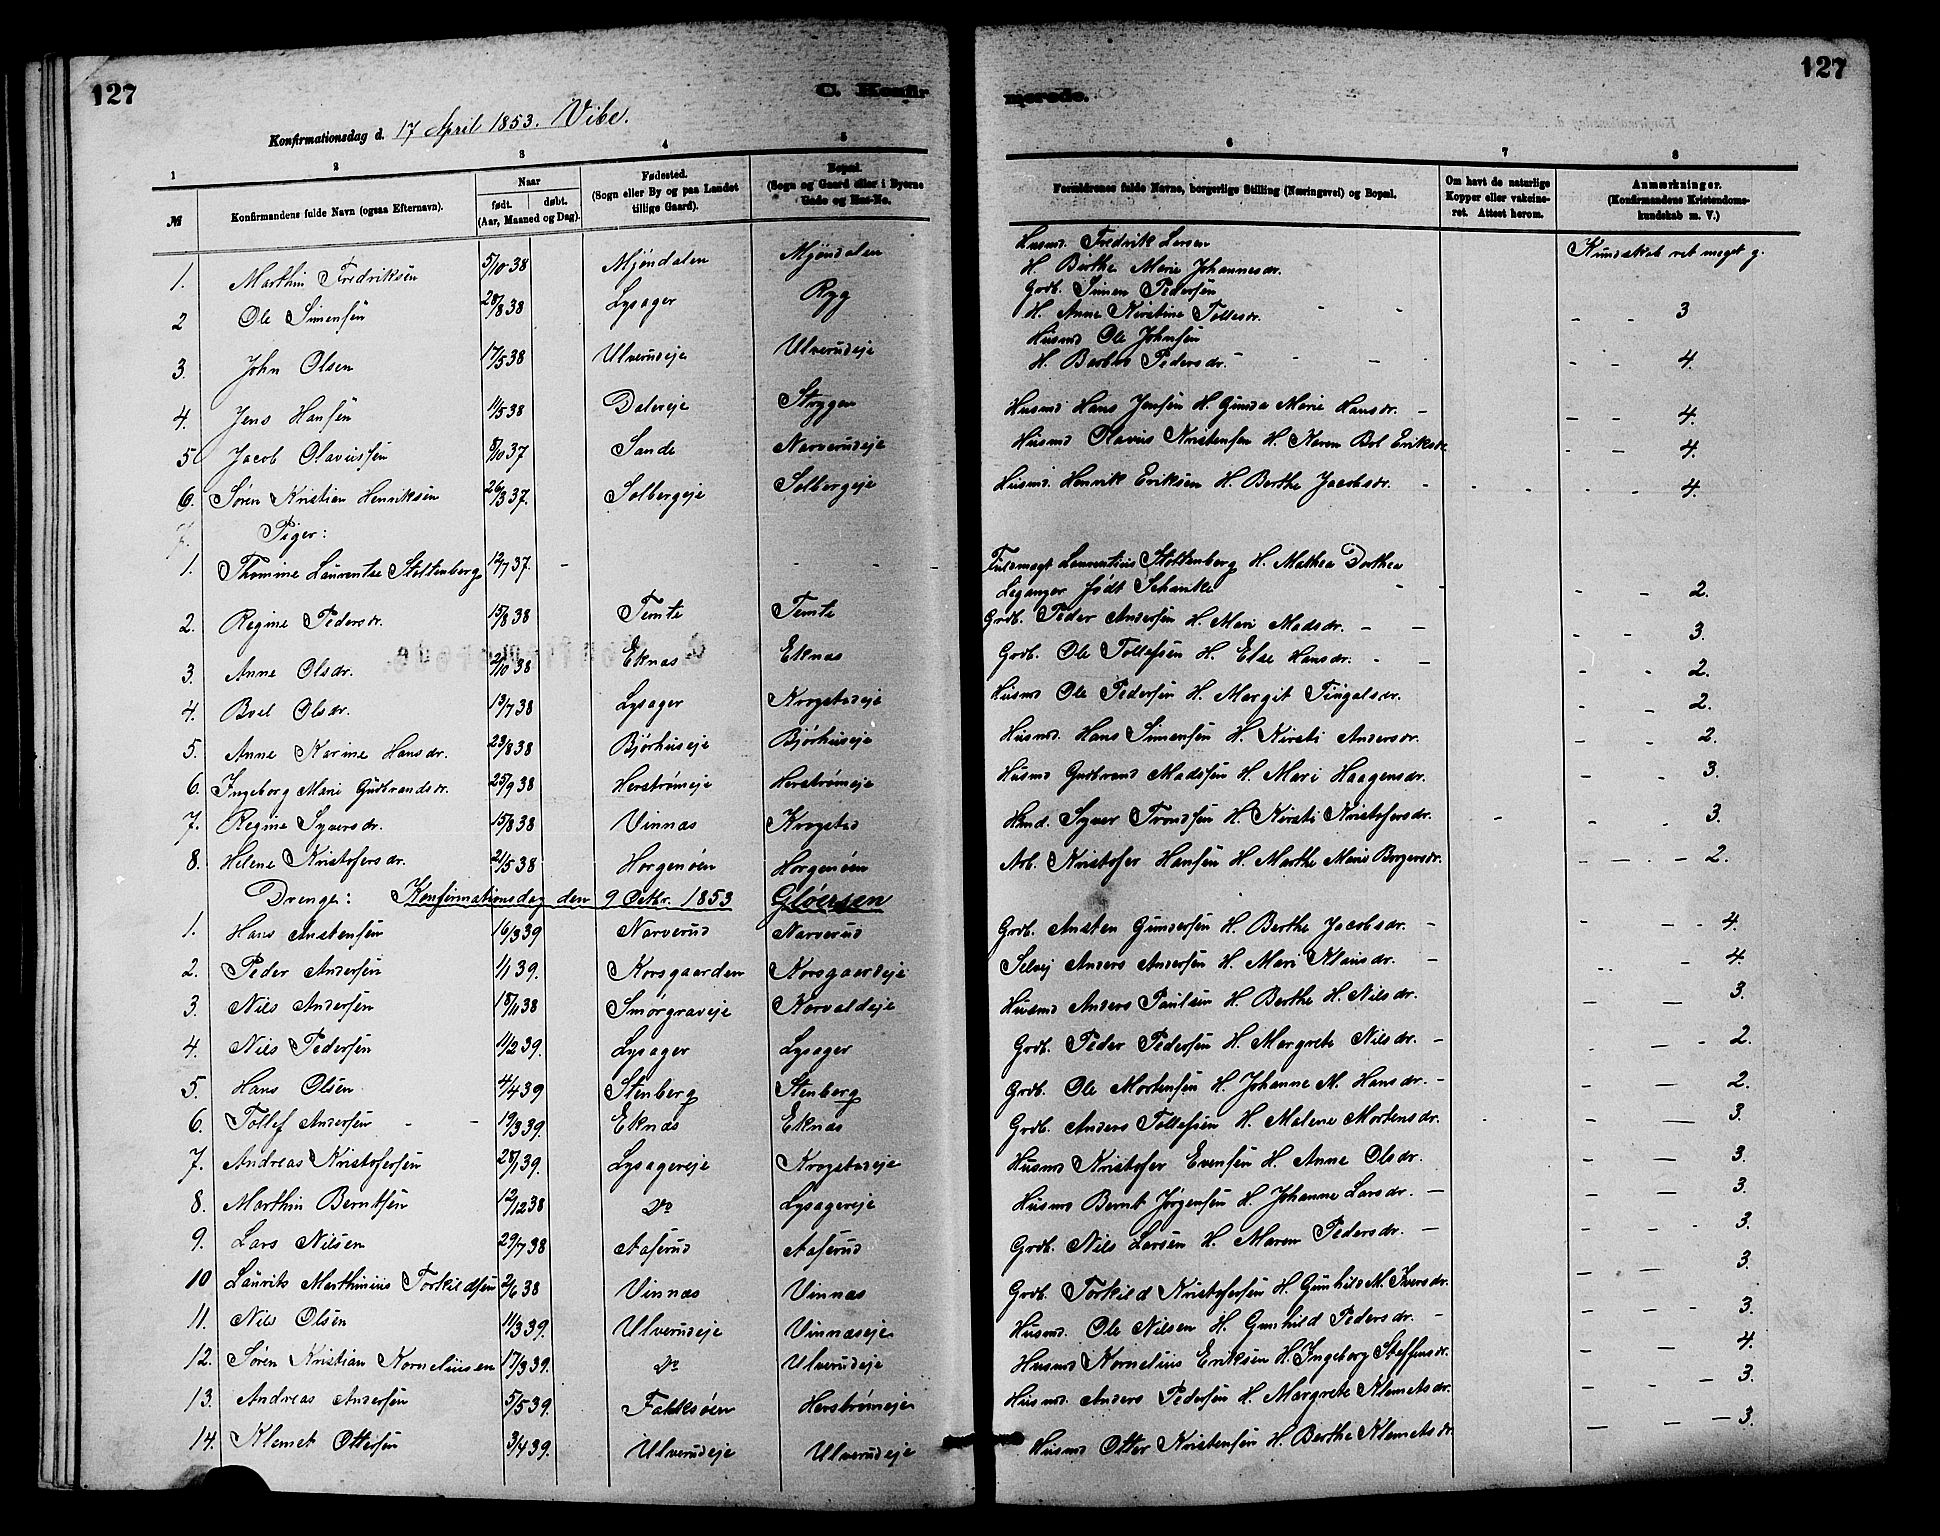 127
C. Konfir
merede.
127
Konfirmationsdag d. 17 April 1853. Vibe.
1 2 3 4 5 6 7 8
№ Konfirmandens fulde Navn (ogsaa Efternavn). Naar født. døbt. (Aar, Maaned og Dag). Fødested. (Sogn eller By og paa Landet tillige Gaard). Bopæl. (Sogn og Gaard eller i Byerne Gade og Hus-No. Forældrenes fulde Navne, borgerlige Stilling (Næringsvei) og Bopæl. Om havt de naturlige Kopper eller vakcineret. Attest herom. Anmærkninger. (Konfirmandens Kristendomskundskab m. V.)
1. Marthin Fredriksen 5/10 38 Mjøndalen Mjøndalen Husmd. Fredrik Larsen H. Birthe Marie Johannesdr. Kundskab ret meget g.
2 Ole Simensen 28/8 38 Lysager Ryg Grdb. Simen Pedersen H. Anne Kirstine Tollesdr. - - - - 3
3. John Olsen 17/5 38 Ulverudeje Ulverudeje Husmd Ole Johnsen H. Barbro Pedersdr. - - - - - 4.
4. Jens Hansen 11/5 38 Dalereje Strygen Husmd Hans Jensen H. Gunda Marie Hansdr. - - - 4.
5 Jacob Olavussen 8/10 37 Sande Narverudeje Husmd Olavus Kristensen H. Karen Bol Eriksdr. - - 4.
6. Søren Kristian Henriksen 26/3 37. Solbergeje Solbergeje Husmd. Henrik Eriksen H. Berthe Jacobsdr. - - - - - 4.
Piger:
1. Thomine Laurentze Stoltenberg 12/7 37. - - - - - Fuldmægt Laurentius Stoltenberg H. Mathea Dorthea Leganger født Schanke - - - - 2.
2. Regine Pedersdr. 15/8 38 Temte Temte Grdb. Peder Andersen H. Mari Madsdr. - - - - 3.
3. Anne Olsdr. 2/10 38 Eknas Eknas Grdb. Ole Tollefsen H. Else Hansdr. - - - - 2.
4. Boel Olsdr. 13/7 38 Lysager Krogstadeje Husmd Ole Pedersen H. Margit Fingalsdr. - - 2.
5. Anne Karine Hansdr. 23/8 38 Bjørhuseje Bjørhuseje Husmd. Hans Simensen H. Kirsti Andersdr. - - 2.
6. Ingeborg Marie Gudbrandsdr. 25/9 38 Herstrømeje Herstrømeje Husmd Gudbrand Madssen H. Mari Haagensdr. - - 3.
7. Regine Syversdr. 15/8 38 Vinnas Krogstad Hmd. Syver Trondsen H. Kirsti Kristofersdr. - - - 3.
8. Helene Kristofersdr. 21/5 38 Horgenøen Horgenøen Arb. Kristofer Hansen H. Marthe Marie Borgersdr. - - - 2.
Drenge: Konfirmationsdag den 9 Octbr. 1853 Gløersen
1. Hans Anstensen 16/3 39 Narverud Narverud Grdb. Ansten Gundersen H. Berthe Jacobsdr. - - - - 4.
2. Peder Andersen 1/1 39. Korsgaarden Korsgaardeje Selvej Anders Andersen H. Mari Klausdr. - - 4.
3. Nils Andersen 18/11 38 Smørgraveje Horvaldeje Husmd Anders Paulsen H. Berthe H. Nilsdr. - - 3.
4. Nils Pedersen 11/2 39. Lysager Lysager Grdb. Peder Pedersen H. Margrete Nilsdr. - - - - 2.
5. Hans Olsen 4/4 39 Stenberg Stenberg Grdb. Ole Mortensen H. Johanne M. Hansdr. - - - 2.
6. Tollef Andersen - - 19/3 39. Eknas Eknas Grdb. Anders Tollefsen H. Malene Mortensdr. - - - 3.
7. Andreas Kristofersen 28/1 39. Lysagereje Krogstadeje Husmd Kristofer Evensen H. Anne Olsdr. - - 3.
8. Marthin Berntsen 12/12 38 Do Lysagereje Husmd Bernt Jørgensen H. Johanne Larsdr. - - - 3.
9. Lars Nilsen 29/7 38 Aaserud Aaserud Grdb. Nils Larsen H. Maren Pedersdr. - - - - 3.
10 Laurits Marthinius Torkildsen 2/6 38 Vinnas Vinnas Grdb. Torkild Kristofersen H. Gunhild M. Iversdr. - - 3.
11. Nils Olsen 11/3 39. Ulverudeje Vinnaseje Husmd. Ole Nilsen H. Gunhild Pedersdr. - - - - 3.
12. Søren Kristian Korneliusen 17/3 39. Do Ulverudeje Husmd Kornelius Eriksen H. Ingeborg Steffensdr. - - 4.
13. Andreas Andersen 5/5 39. Falksøen Herstrømeje Husmd. Anders Pedersen H. Margrete Klemetsdr. - - - 3.
14. Klemet Ottersen 3/4 39. Ulverudeje Ulverudeje Husmd Otter Kristensen H. Berthe Klemetsdr. - - - 3.